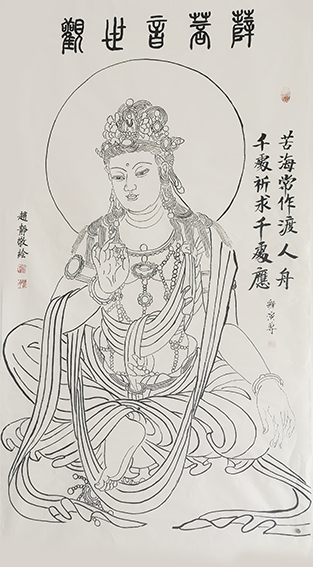 觀世音菩薩
苦海常作渡人舟
千處祈求千處應
趙靜敬繪